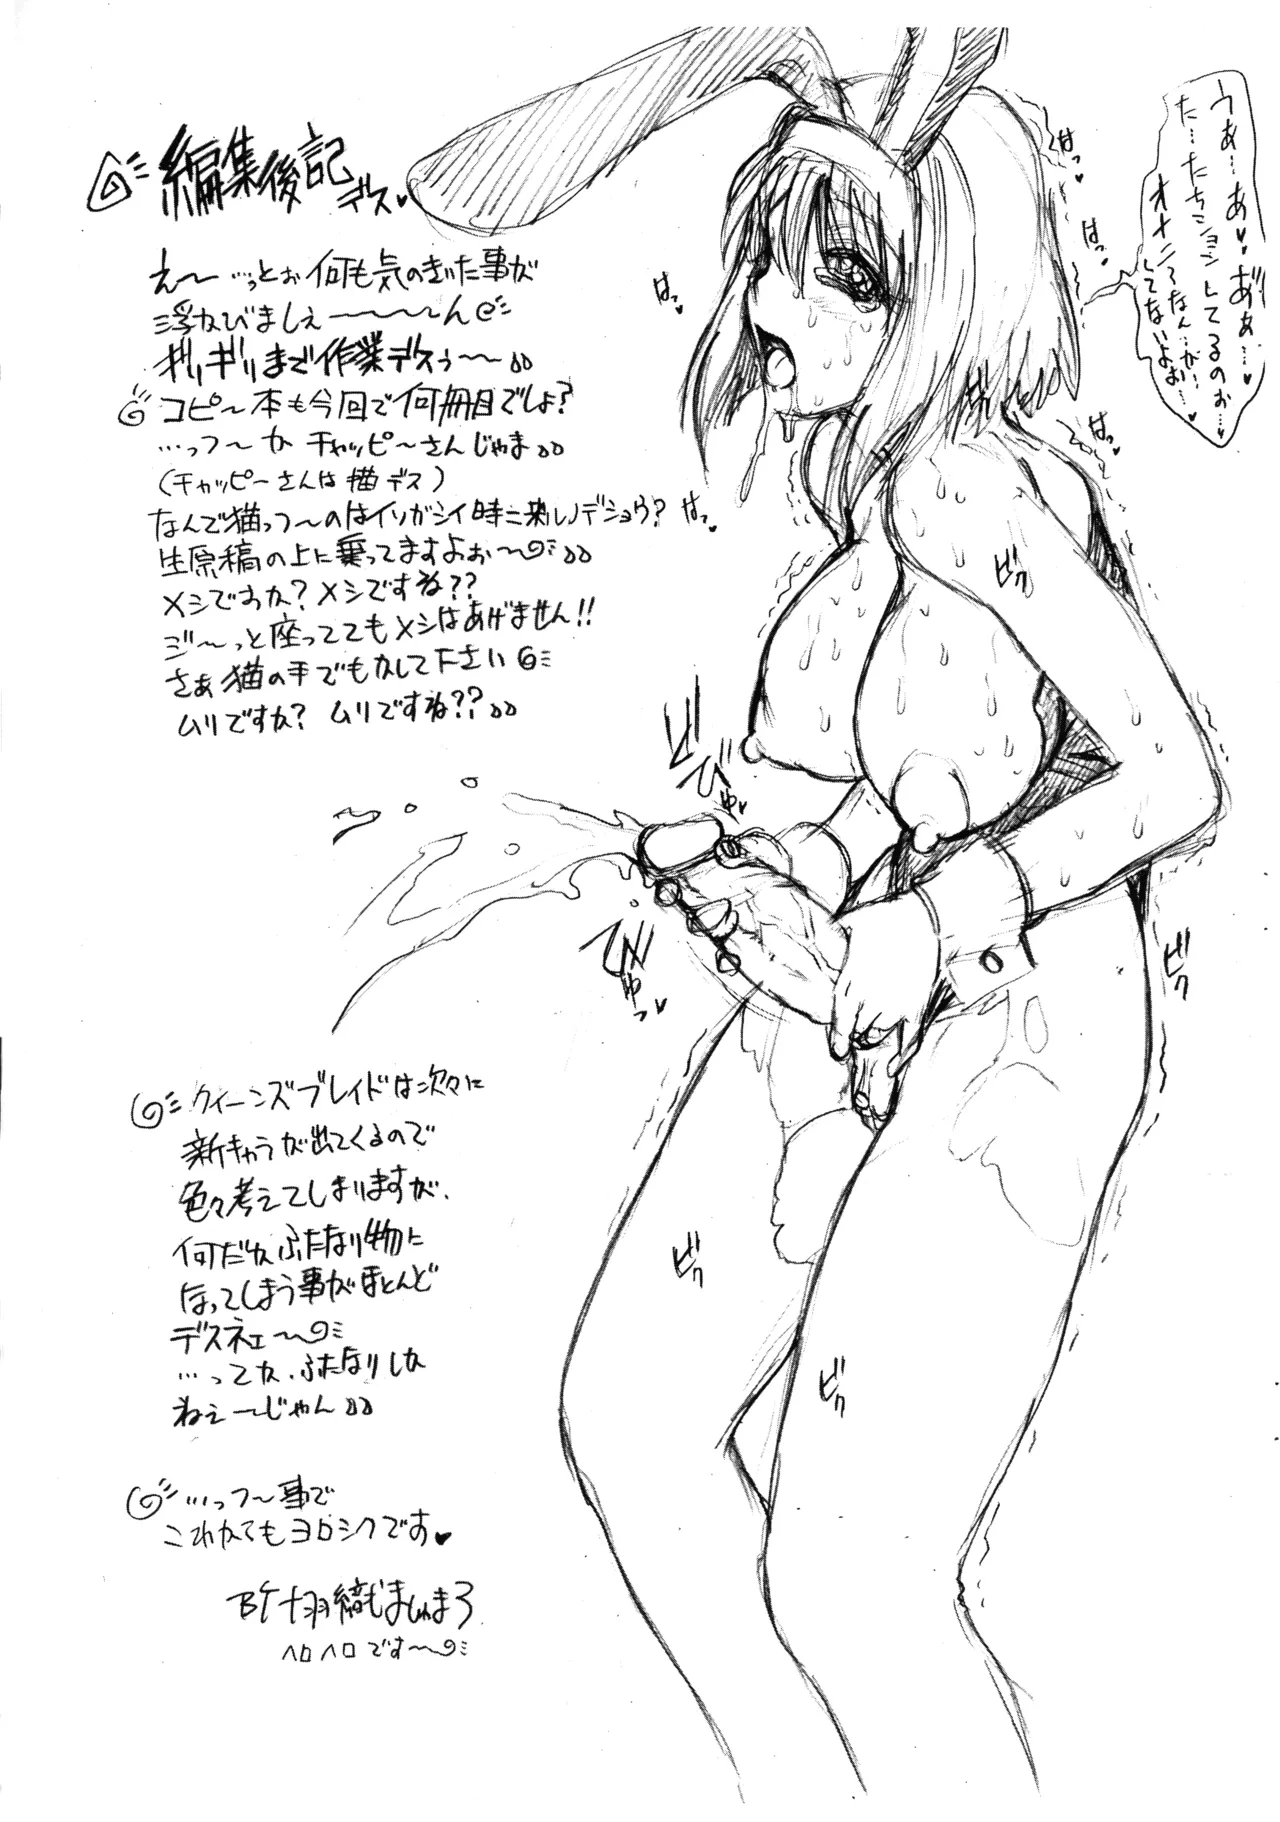 編集後記デス♥
え〜…っとぉ何も気のきいた事が
浮かびましぇ〜〜〜〜ん
ギリギリまで作業デスぅ〜〜
コピ〜本も今回で何冊目でしょ?
…っつ〜かチャッピ〜さんじゃま
(チャッピ〜さんは猫デス)
なんで猫っつ〜のはイソガシイ時ニ来ルノデショウ?
生原稿の上に乗ってますよぉ〜
メシですか?メシですね??
ジ〜〜っと座っててもメシはあげません!!
さぁ猫の手でもかして下さい
ムリですか? ムリですね??
クイーンズブレイドは次々に
新キャラが出てくるので
色々考えてしまりますが、
何だかふたなり物に
なってしまう事がほとんど
デスネェ〜
…ってか、ふたなりしか
ねぇ〜じゃん
…っつ〜事で
これからもヨロシクです♥
BY 羽織ましゅまろ
ヘロヘロです〜
うぁ…あ♥あぁ…♥
た…たちションしてるのぉ…♥
オナニーなん…が…
してないよぉ…♥
はっ♥
はっ♥
はっ♥
はっ♥
はっ♥
ビク
ビク
ビク
ビク
ビク